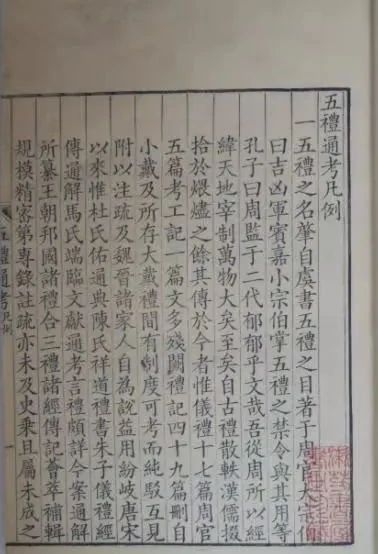 五禮通考凡例
一五禮之名肇自虞書五禮之目著于周官大宗伯
曰吉凶軍賓嘉小宗伯掌五禮之禁令與其用等
孔子曰周監于二代郁郁乎文哉吾從周所以經
緯天地宰制萬物大矣至矣自古禮散軼漢儒掇
拾於煨燼之餘其傳於今者惟儀禮十七篇周官
五篇考工記一篇文多殘闕禮記四十九篇刪自
小戴及所存大戴禮間有制度可考而純駁互見
附以注疏及魏晉諸家人自為說益用紛岐唐宋
以來惟杜氏佑通典陳氏祥道禮書朱子儀禮經
傳通解馬氏端臨文獻通考言禮頗詳今案通解
所纂王朝邦國諸禮合三禮諸經傳記薈萃補輯
規模精密第專錄註疏亦未及史乘且屬未成之
五禮通考
凡例
一